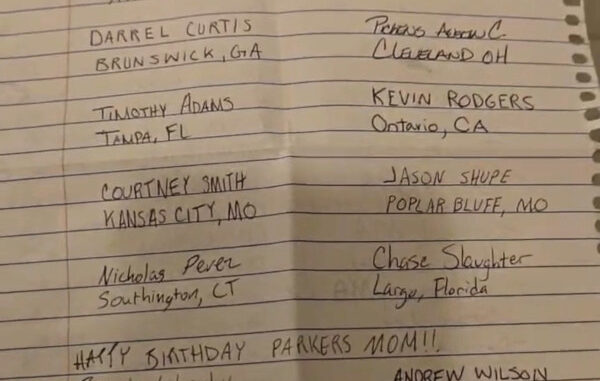 DARREL CURTIS
BRUNSWICK, GA
TIMOTHY ADAMS
TAMPA, FL
COURTNEY SMITH
KANSAS CITY, MO
Nicholas Perez
Southington, CT
C.
CLEVELAND OH
KEVIN RODGERS
Ontario, CA
JASON SHUPE
POPLAR BLUFF, MO
Chase Slaughter
Largo, Florida
HAPPY BIRTHDAY PARKERS MOM!!
ANDREW WILSON